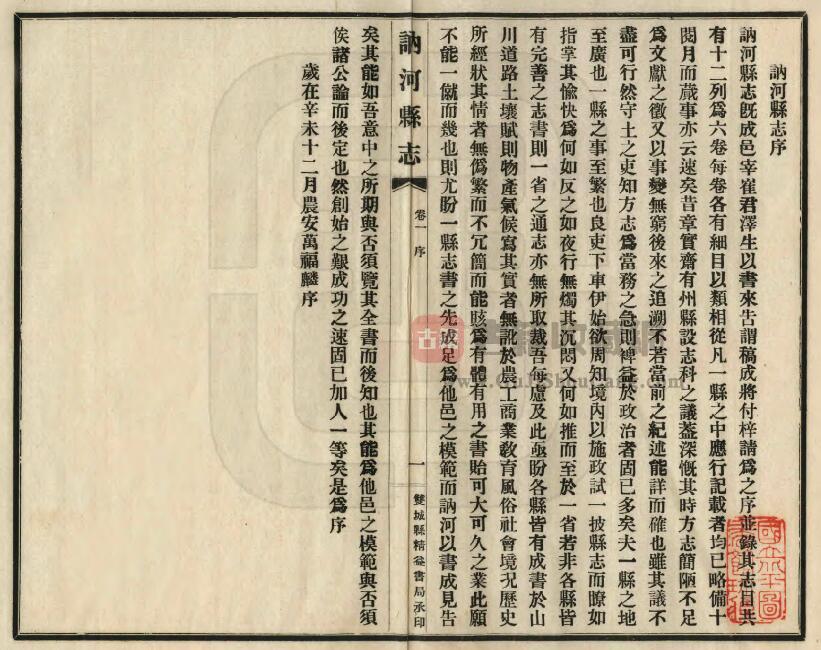 訥河縣志序
訥河縣志既成邑宰崔君澤生以書來告謂稿成將付梓請爲之序並錄其志目共
有十二列爲六卷每卷各有細目以類相從凡一縣之中應行記載者均已略備十
閱月而蕆事亦云速矣昔章實齋有州縣設志科之議葢深慨其時方志簡陋不足
爲文獻之徵又以事變無窮後來之追溯不若當前之紀述能詳而確也雖其議不
盡可行然守土之吏知方志爲當務之急則裨益於政治者固已多矣夫一縣之地
至廣也一縣之事至繁也良吏下車伊始欲周知境內以施政試一披縣志而瞭如
指掌其愉快爲何如反之如夜行無燭其沉悶又何如推而至於一省若非各縣皆
有完善之志書則一省之通志亦無所取裁吾每慮及此亟盼各縣皆有成書於山
川道路土壤賦則物產氣候寫其實者無訛於農工商業敎育風俗社會境况歷史
所經狀其情者無僞繁而不冗簡而能賅爲有體有用之書貽可大可久之業此願
不能一僦而幾也則尤盼一縣志書之先成足爲他邑之模範而訥河以書成見告
訥河縣志
卷一 序
一
雙城縣精益書局承印
矣其能如吾意中之所期與否須覽其全書而後知也其能爲他邑之模範與否須
俟諸公論而後定也然創始之艱成功之速固已加人一等矣是爲序
歲在辛未十二月農安萬福麟序